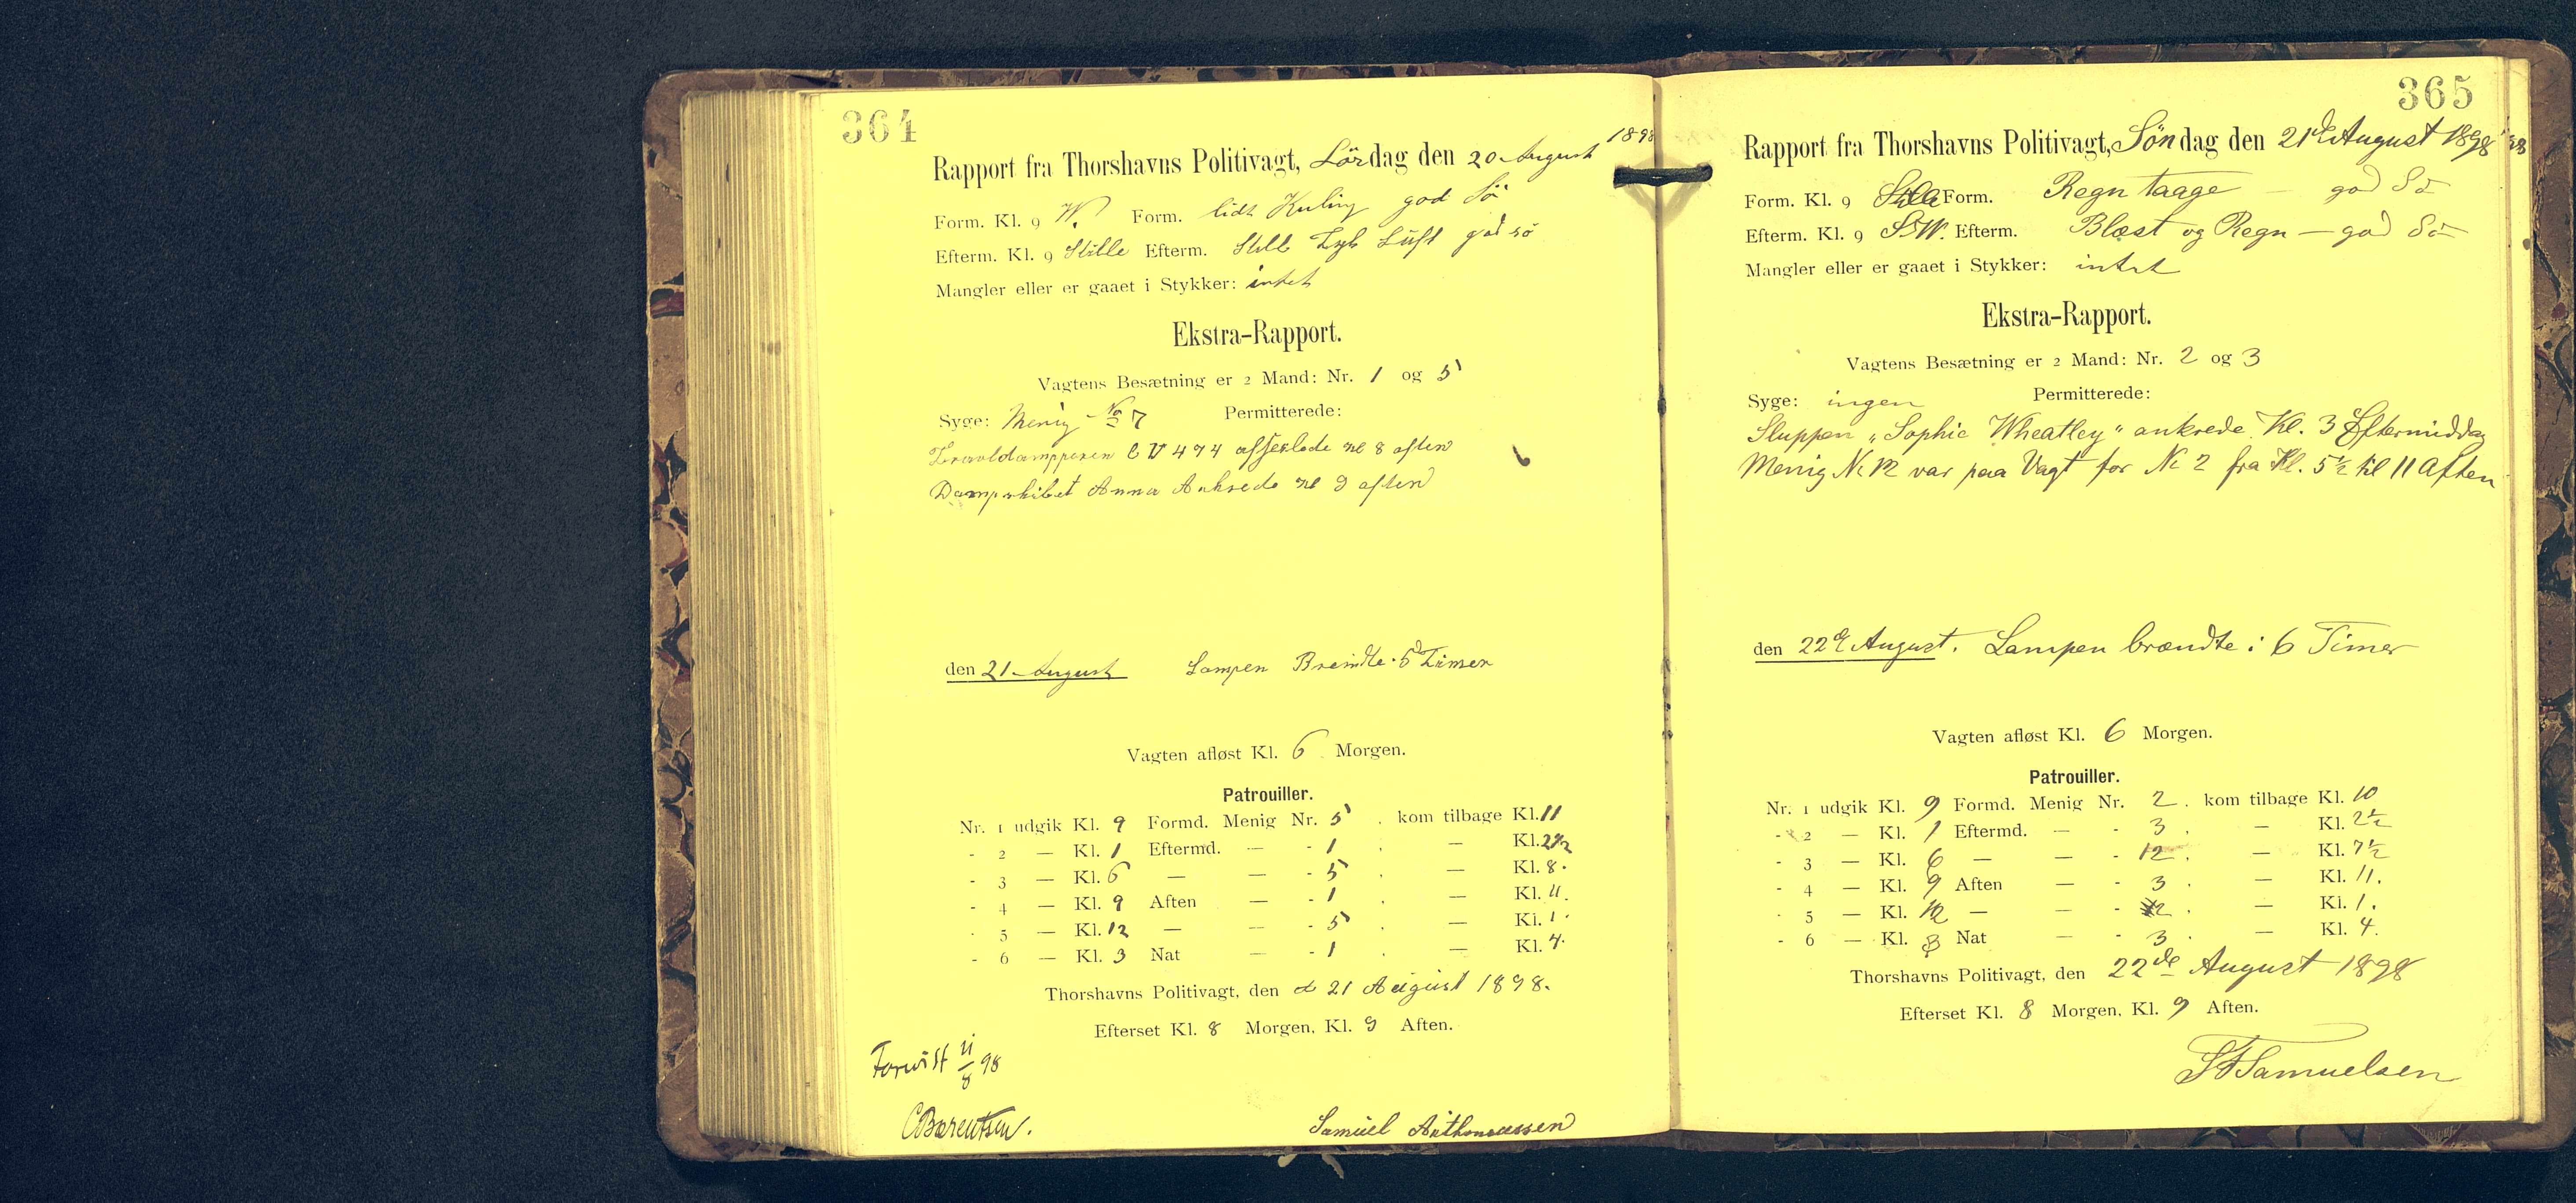 364
Rapport fra Thorshavns Politivagt, Lördag den 20 August 1898
Form. Kl. 9 W. Form. lidt Kuling god Sö
Efterm. Kl. 9 Stille Efterm. Luft god sö
Mangler eller er gaaet i Stykker: intet
Ekstra-Rapport.
Vagtens Besætning er 2 Mand: Nr. 1 og 5
Syge: Menig No 7 Permitterede:
474 afseilede kl 8 aften
Dampskibet Anna Ankrede kl 9 aften
den 21 August Lampen Brendte 5 Timer
Vagten afløst Kl. 6 Morgen.
Patrouiller.
Nr. 1 udgik Kl. 9 Formd. Menig Nr. 5 . kom tilbage Kl. 11
- 2 — Kl. 1 Eftermd. — - 1 . — Kl. 2½
- 3 — Kl. 6 — — - 5 . — Kl. 8.
- 4 — Kl. 9 Aften — - 1 . — Kl. 11.
- 5 — Kl. 12 — — - 5 . — Kl. 1.
- 6 — Kl. 3 Nat — - 1 . — Kl. 4.
Thorshavns Politivagt, den d 21 August 1898.
Efterset Kl. 8 Morgen, Kl. 9 Aften.
Forvist 8 98
CBærentsen.
Samuel
365
Rapport fra Thorshavns Politivagt, Söndag den 21de August 1898
Form. Kl. 9 Stille Form. Regn taage — god Sö
Efterm. Kl. 9 SW. Efterm. Blæst og Regn — god Sö
Mangler eller er gaaet i Stykker: intet
Ekstra-Rapport.
Vagtens Besætning er 2 Mand: Nr. 2 og 3
Syge: ingen Permitterede:
Sluppen „Sophie Wheatley" ankrede Kl. 3 Eftermiddag
Menig No 12 var paa Vagt for No 2 fra Kl. 5½ til 11 Aften
den 22de August. Lampen brændte i 6 Timer
Vagten afløst Kl. 6 Morgen.
Patrouiller.
Nr. 1 udgik Kl. 9 Formd. Menig Nr. 2 . kom tilbage Kl. 10
- 2 — Kl. 1 Eftermd. — - 3 . — Kl. 2½
- 3 — Kl. 6 — — - 12 . — Kl. 7½
- 4 — Kl. 9 Aften — - 3 . — Kl. 11.
- 5 — Kl. 12 — — - 2 . — Kl. 1.
- 6 — Kl. 3 Nat — - 3 . — Kl. 4.
Thorshavns Politivagt, den 22de August 1898
Efterset Kl. 8 Morgen, Kl. 9 Aften.
Samuelsen